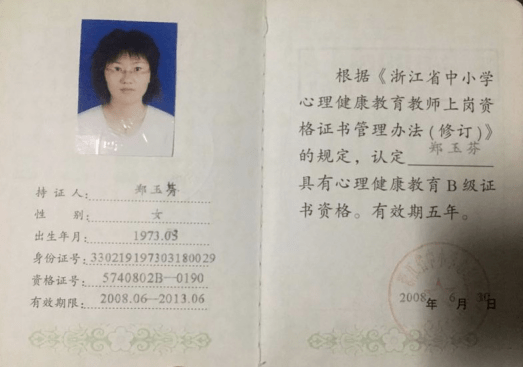 持证人：郑玉芬
性别：女
出生年月：1973.03
身份证号：330219197303180029
资格证号：5740802B—0190
有效期限：2008.06—2013.06
根据《浙江省中小学
心理健康教育教师上岗资
格证书管理办法(修订)》
的规定，认定 郑玉芬
具有心理健康教育B级证
书资格。有效期五年。
2008年6月30日